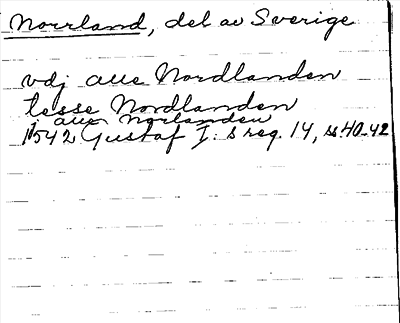 Norrland, del av Sverige
vdj alle Nordlanden
tesse Nordlanden
j alle Norlanden
1542 Gustaf I:s reg. 14, ss. 40-42